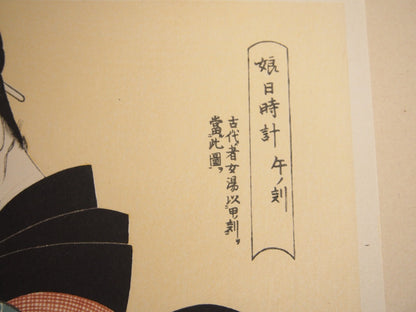 娘日時計 午ノ刻
古代者女湯以甲ノ刻
當此圖